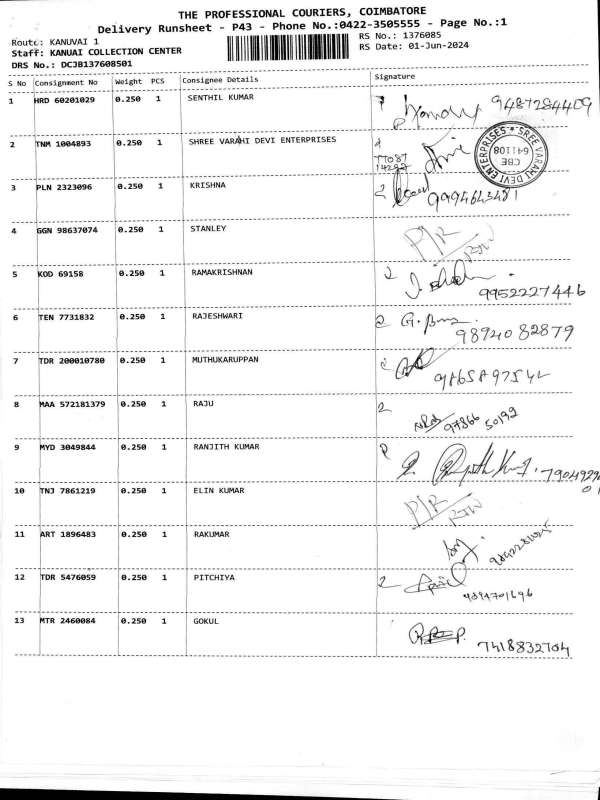 THE PROFESSIONAL COURIERS, COIMBATORE
Delivery Runsheet - P43 - Phone No.:0422-3505555 - Page No.:1
Route: KANUVAI 1 RS No.: 1376085
Staff: KANUAI COLLECTION CENTER RS Date: 01-Jun-2024
DRS No.: DCJB137608501
S No Consignment No Weight PCS Consignee Details Signature
1 HRD 60201029 0.250 1 SENTHIL KUMAR 9487284409
2 TNM 1004893 0.250 1 SHREE VARAHI DEVI ENTERPRISES
SREE VARAHI DEVI ENTERPRISES CBE 641108
3 PLN 2323096 0.250 1 KRISHNA 2 9994643481
4 GGN 98637074 0.250 1 STANLEY P/R
5 KOD 69158 0.250 1 RAMAKRISHNAN 2 9952227446
6 TEN 7731832 0.250 1 RAJESHWARI 2 9894082879
7 TDR 200010780 0.250 1 MUTHUKARUPPAN
8 MAA 572181379 0.250 1 RAJU 2 97866 50192
9 MYD 3049844 0.250 1 RANJITH KUMAR
10 TNJ 7861219 0.250 1 ELIN KUMAR P/R
11 ART 1896483 0.250 1 RAKUMAR
12 TDR 5476059 0.250 1 PITCHIYA 2
13 MTR 2460084 0.250 1 GOKUL 7418832704